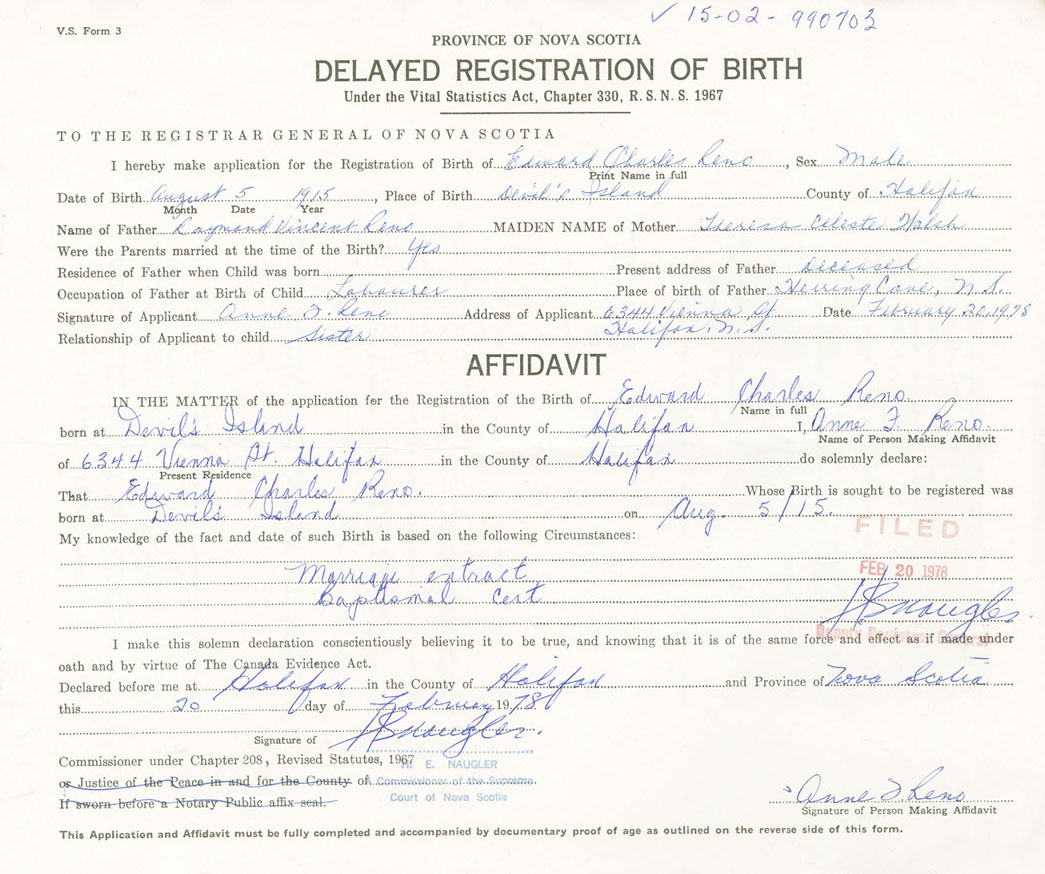 V.S. Form 3
✓ 15-02-990703
PROVINCE OF NOVA SCOTIA
DELAYED REGISTRATION OF BIRTH
Under the Vital Statistics Act, Chapter 330, R.S.N.S. 1967
TO THE REGISTRAR GENERAL OF NOVA SCOTIA
I hereby make application for the Registration of Birth of Edward Charles Reno, Sex Male
Print Name in full
Date of Birth August 5 1915, Place of Birth Devil's Island County of Halifax
Month Date Year
Name of Father Raymond Vincent Reno MAIDEN NAME of Mother Theresa Celeste Walsh
Were the Parents married at the time of the Birth? Yes
Residence of Father when Child was born Present address of Father deceased
Occupation of Father at Birth of Child Labourer Place of birth of Father Herring Cove, N.S.
Signature of Applicant Anne F. Reno Address of Applicant 6344 Vienna St Date February 20, 1978
Halifax, N.S.
Relationship of Applicant to child Sister
AFFIDAVIT
IN THE MATTER of the application for the Registration of the Birth of Edward Charles Reno
Name in full
born at Devil's Island in the County of Halifax I, Anne F. Reno.
Name of Person Making Affidavit
of 6344 Vienna St. Halifax in the County of Halifax do solemnly declare:
Present Residence
That Edward Charles Reno. Whose Birth is sought to be registered was
born at Devil's Island on Aug. 5/15.
My knowledge of the fact and date of such Birth is based on the following Circumstances:
FILED
Marriage extract
FEB 20 1978
Baptismal Cert
HENaugler
I make this solemn declaration conscientiously believing it to be true, and knowing that it is of the same force and effect as if made under
oath and by virtue of The Canada Evidence Act.
Declared before me at Halifax in the County of Halifax and Province of Nova Scotia
this 20 day of February 1978
Signature of HENaugler.
Commissioner under Chapter 208, Revised Statutes, 1967
H. E. NAUGLER
or Justice of the Peace in and for the County of
A Commissioner of the Supreme
If sworn before a Notary Public affix seal.
Court of Nova Scotia
Anne F Reno
Signature of Person Making Affidavit
This Application and Affidavit must be fully completed and accompanied by documentary proof of age as outlined on the reverse side of this form.